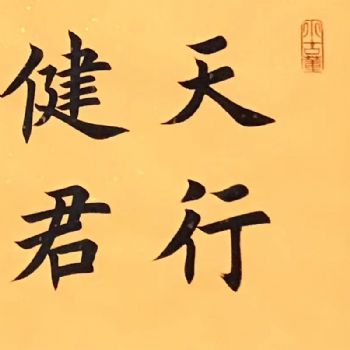 天行
健君